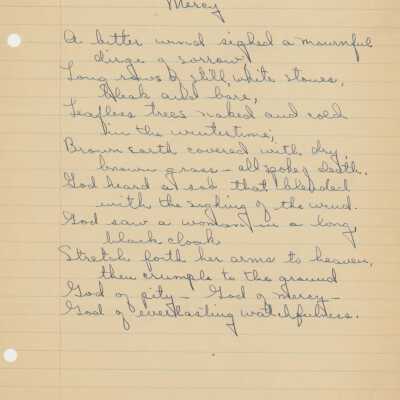 Mercy
A bitter wind sighed a mournful
dirge of sorrow
Long rows of still, white stones,
bleak and bare,
Leafless trees naked and cold
in the wintertime;
Brown earth covered with dry,
brown grass — all spoke of death.
God heard a sob that blended
with the sighing of the wind.
God saw a woman in a long,
black cloak
Stretch forth her arms to heaven,
then crumple to the ground
God of pity — God of mercy —
God of everlasting watchfulness.